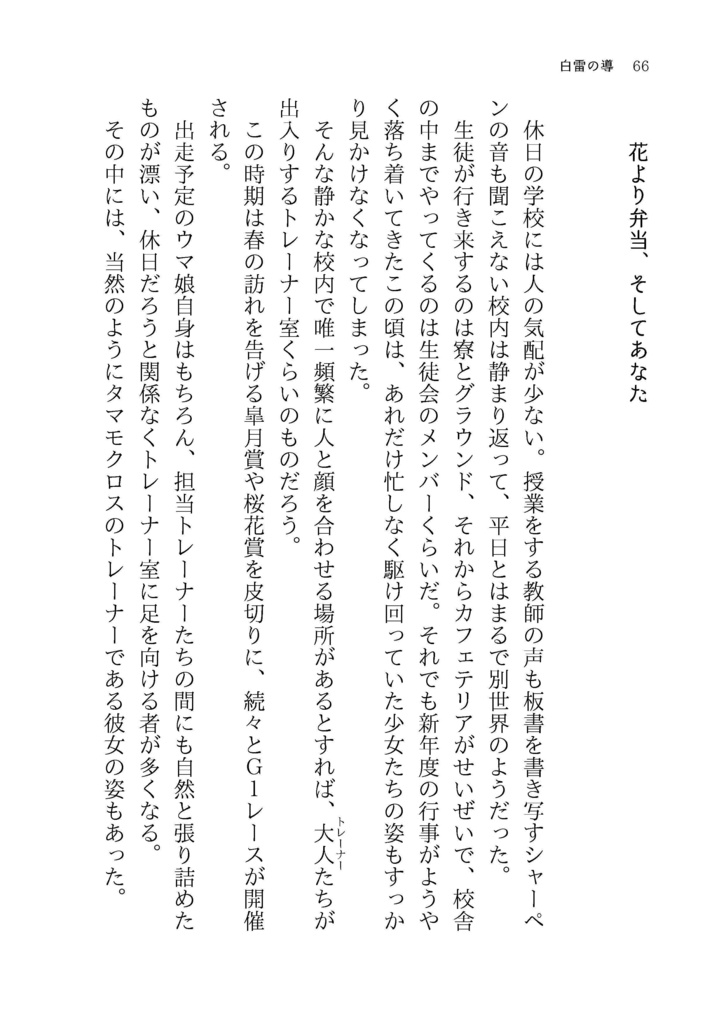 白雷の導　66
花より弁当、そしてあなた
　休日の学校には人の気配が少ない。授業をする教師の声も板書を書き写すシャーペ
ンの音も聞こえない校内は静まり返って、平日とはまるで別世界のようだった。
　生徒が行き来するのは寮とグラウンド、それからカフェテリアがせいぜいで、校舎
の中までやってくるのは生徒会のメンバーくらいだ。それでも新年度の行事がようや
く落ち着いてきたこの頃は、あれだけ忙しなく駆け回っていた少女たちの姿もすっか
り見かけなくなってしまった。
　そんな静かな校内で唯一頻繁に人と顔を合わせる場所があるとすれば、大人たちが
トレーナー
出入りするトレーナー室くらいのものだろう。
　この時期は春の訪れを告げる皐月賞や桜花賞を皮切りに、続々とＧ１レースが開催
される。
　出走予定のウマ娘自身はもちろん、担当トレーナーたちの間にも自然と張り詰めた
ものが漂い、休日だろうと関係なくトレーナー室に足を向ける者が多くなる。
　その中には、当然のようにタマモクロスのトレーナーである彼女の姿もあった。